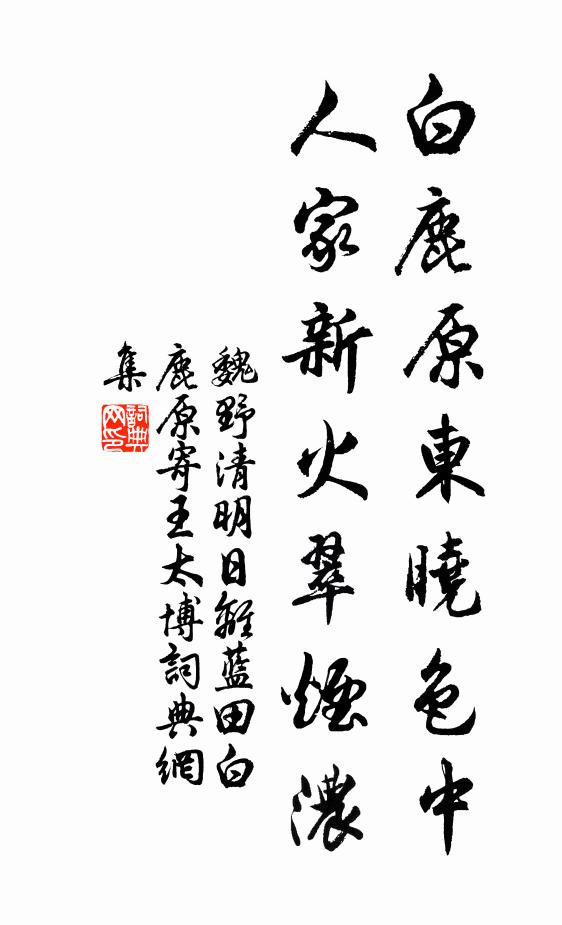 白鹿原東曉色中
人家新火翠煙濃
魏野清明日離藍田白
鹿原寄王太博詞典網
集
詞典網印